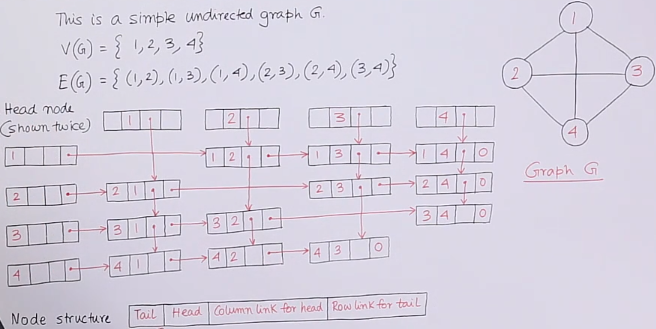 This is a simple undirected graph G.
V(G) = { 1, 2, 3, 4}
E(G) = { (1,2), (1,3), (1,4), (2,3), (2,4), (3,4)}
1
2 3
4
Graph G
Head node
(shown twice)
1 2 3 4
1 1 2 1 3 1 4 0
2 2 1 2 3 2 4 0
3 3 1 3 2 3 4 0
4 4 1 4 2 4 3 0
Node structure Tail Head Column link for head Row link for tail